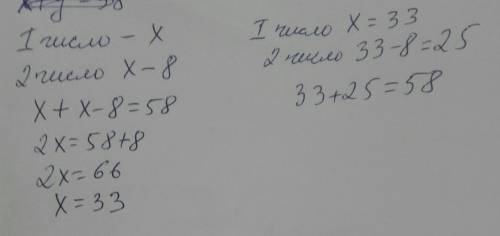 x+y=58
1 число – x
2 число x-8
x+x-8=58
2x=58+8
2x=66
x=33
I число x=33
2 число 33-8=25
33+25=58